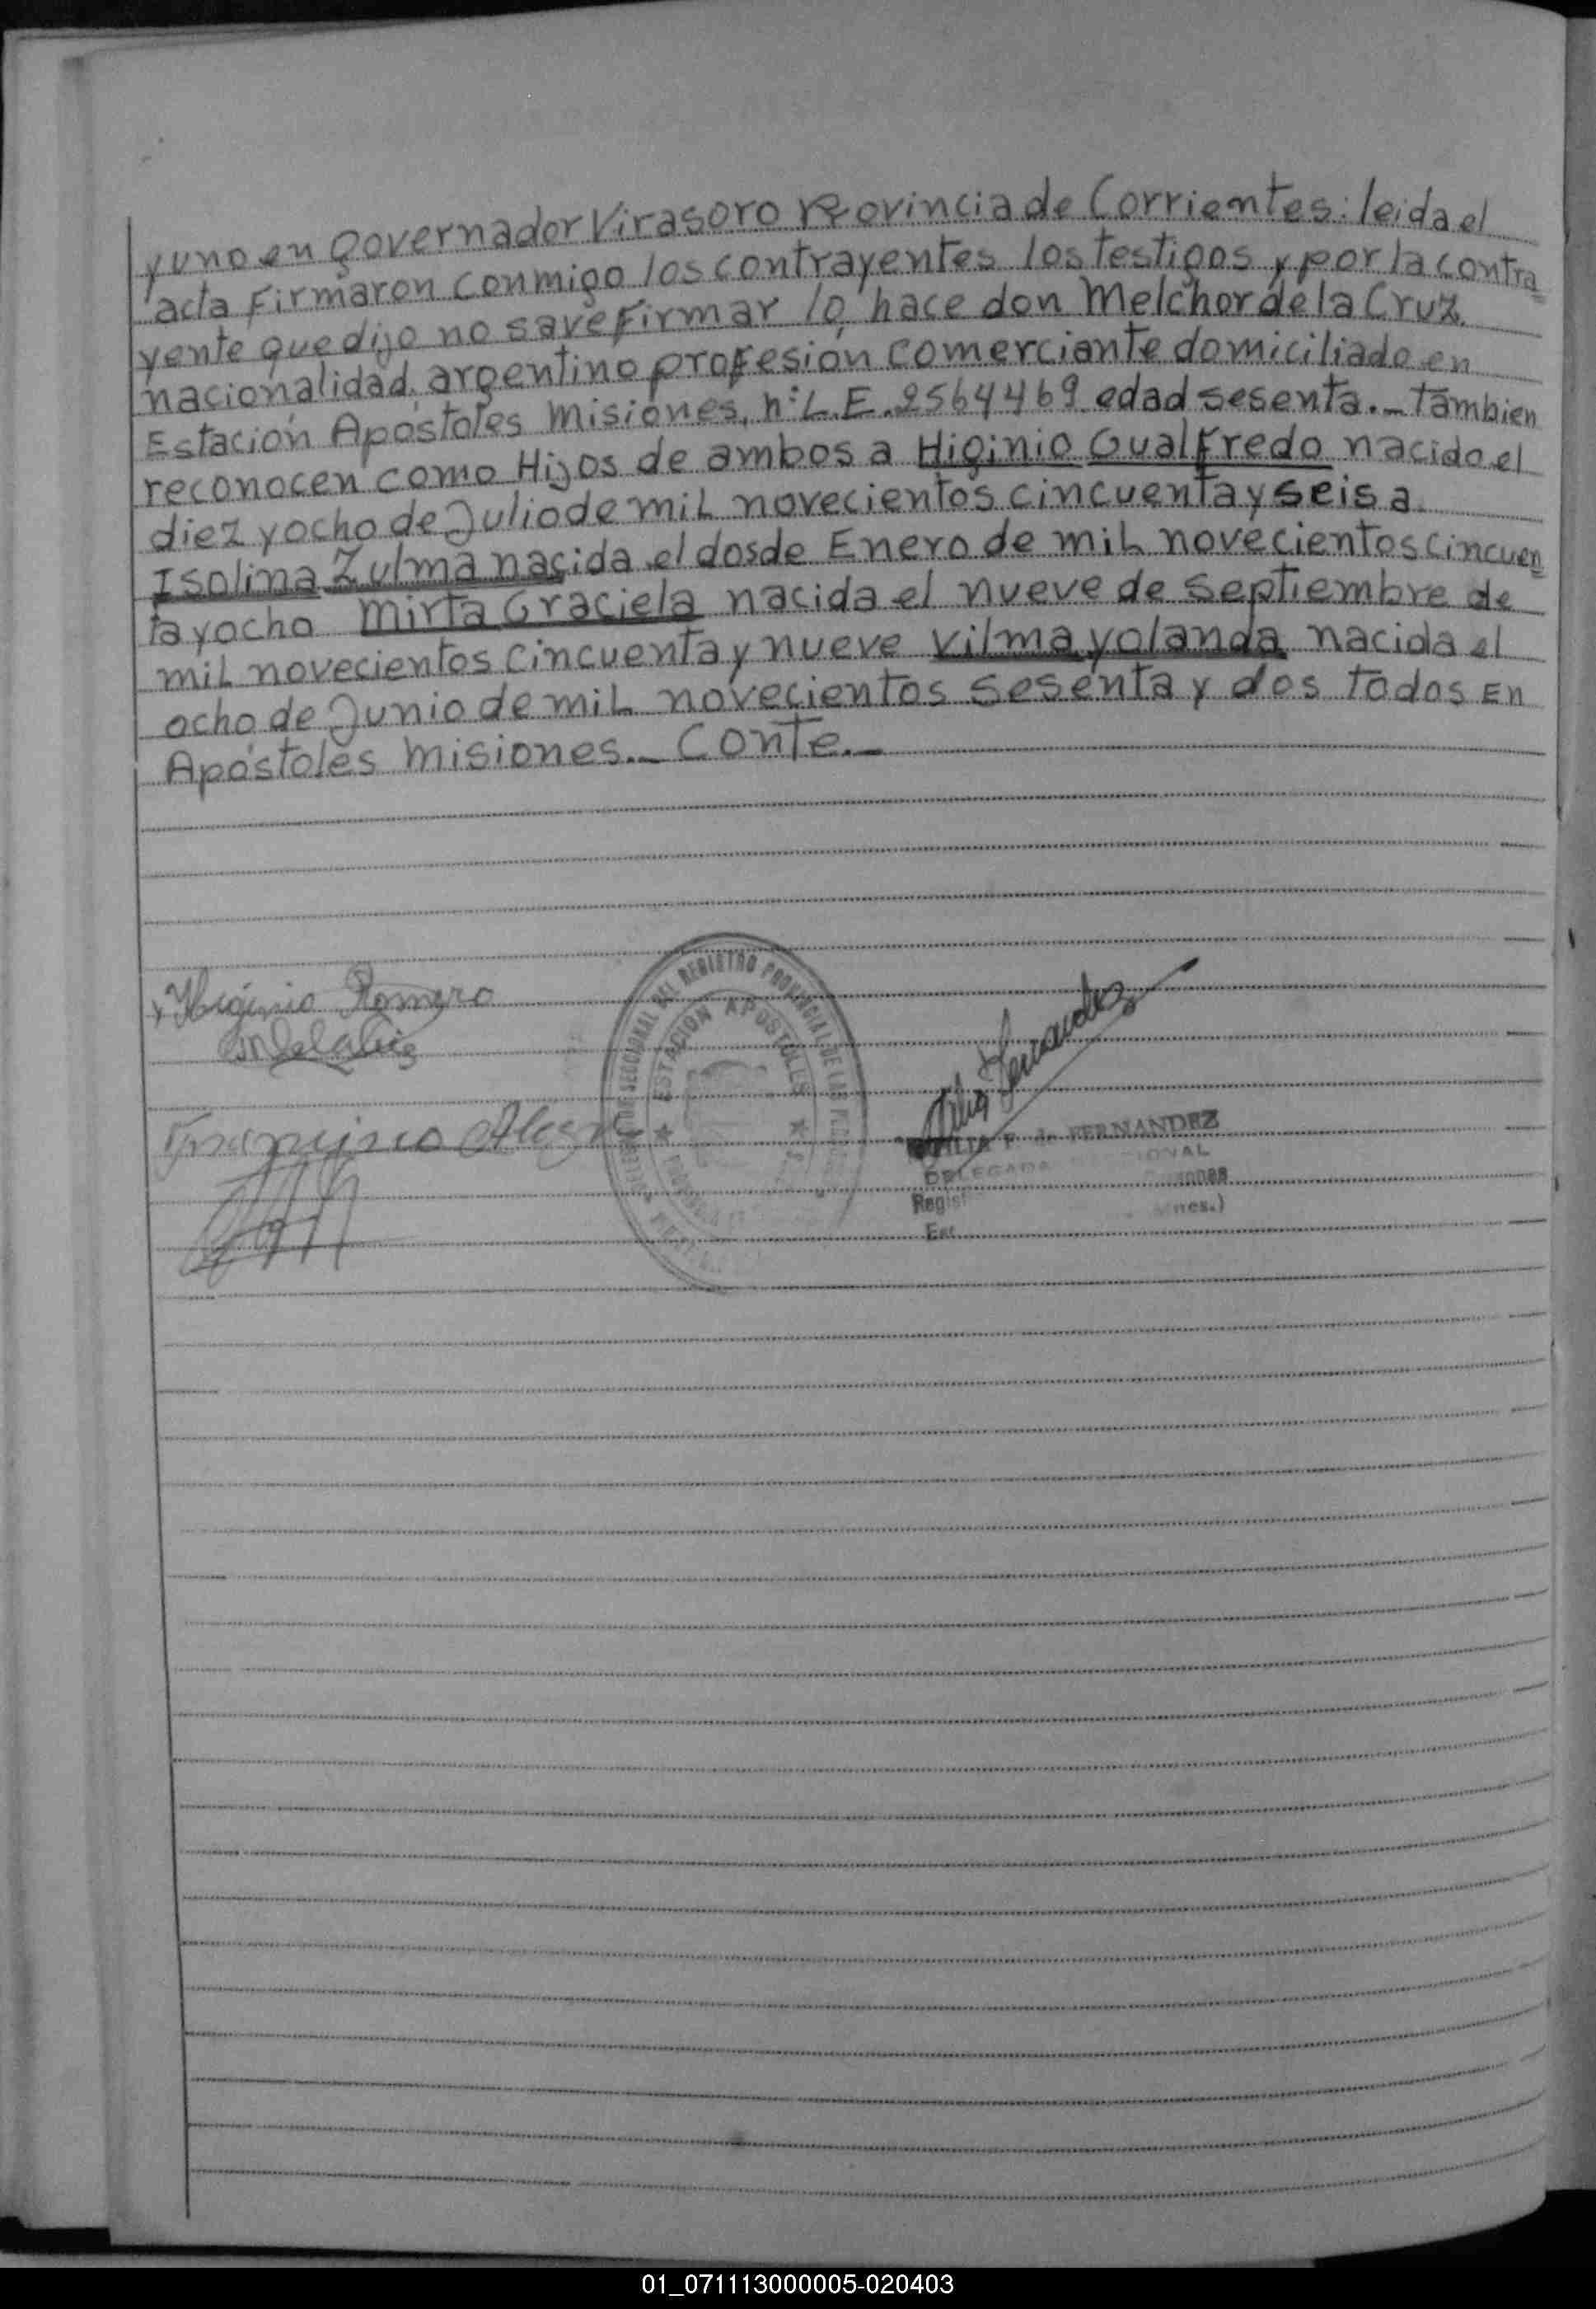 y uno en governador Virasoro Provincia de Corrientes: leida el
acta Firmaron conmigo los contrayentes los testigos y por la contra=
yente que dijo no save Firmar lo hace don Melchor de la Cruz
nacionalidad argentino profesión comerciante domiciliado en
Estación Apóstoles Misiones, n: L.E. 2564469 edad sesenta._ también
reconocen como Hijos de ambos a Higinio Gualfredo nacido el
diez y ocho de Julio de mil novecientos cincuenta y seis a
Isolina Zulma nacida el dos de Enero de mil novecientos cincuen=
ta y ocho Mirta Graciela nacida el nueve de septiembre de
mil novecientos cincuenta y nueve Vilma yolanda nacida el
ocho de Junio de mil novecientos sesenta y dos todos En
Apóstoles Misiones._ Conte._
Higinio Romero
DEL REGISTRO PROVINCIAL DE LAS
ESTACION APOSTOLES
Fernandez
F. de FERNANDEZ
DELEGADA
Regis
01_071113000005-020403